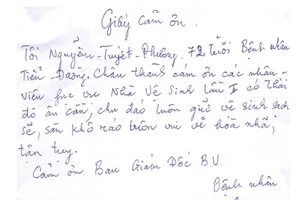 Giấy cảm ơn.
Tôi Nguyễn-Tuyết-Phường 72 tuổi Bệnh nhân
Tiểu-Đường. Chân thành cảm ơn các nhân
viên fục vụ Nhà Vệ Sinh lầu I có thái
độ ân cần, chu đáo luôn giữ vệ sinh sạch
sẽ, sàn khô ráo luôn vui vẻ hòa nhã,
tận tuỵ.
Cảm ơn Ban Giám Đốc B.V.
Bệnh nhân